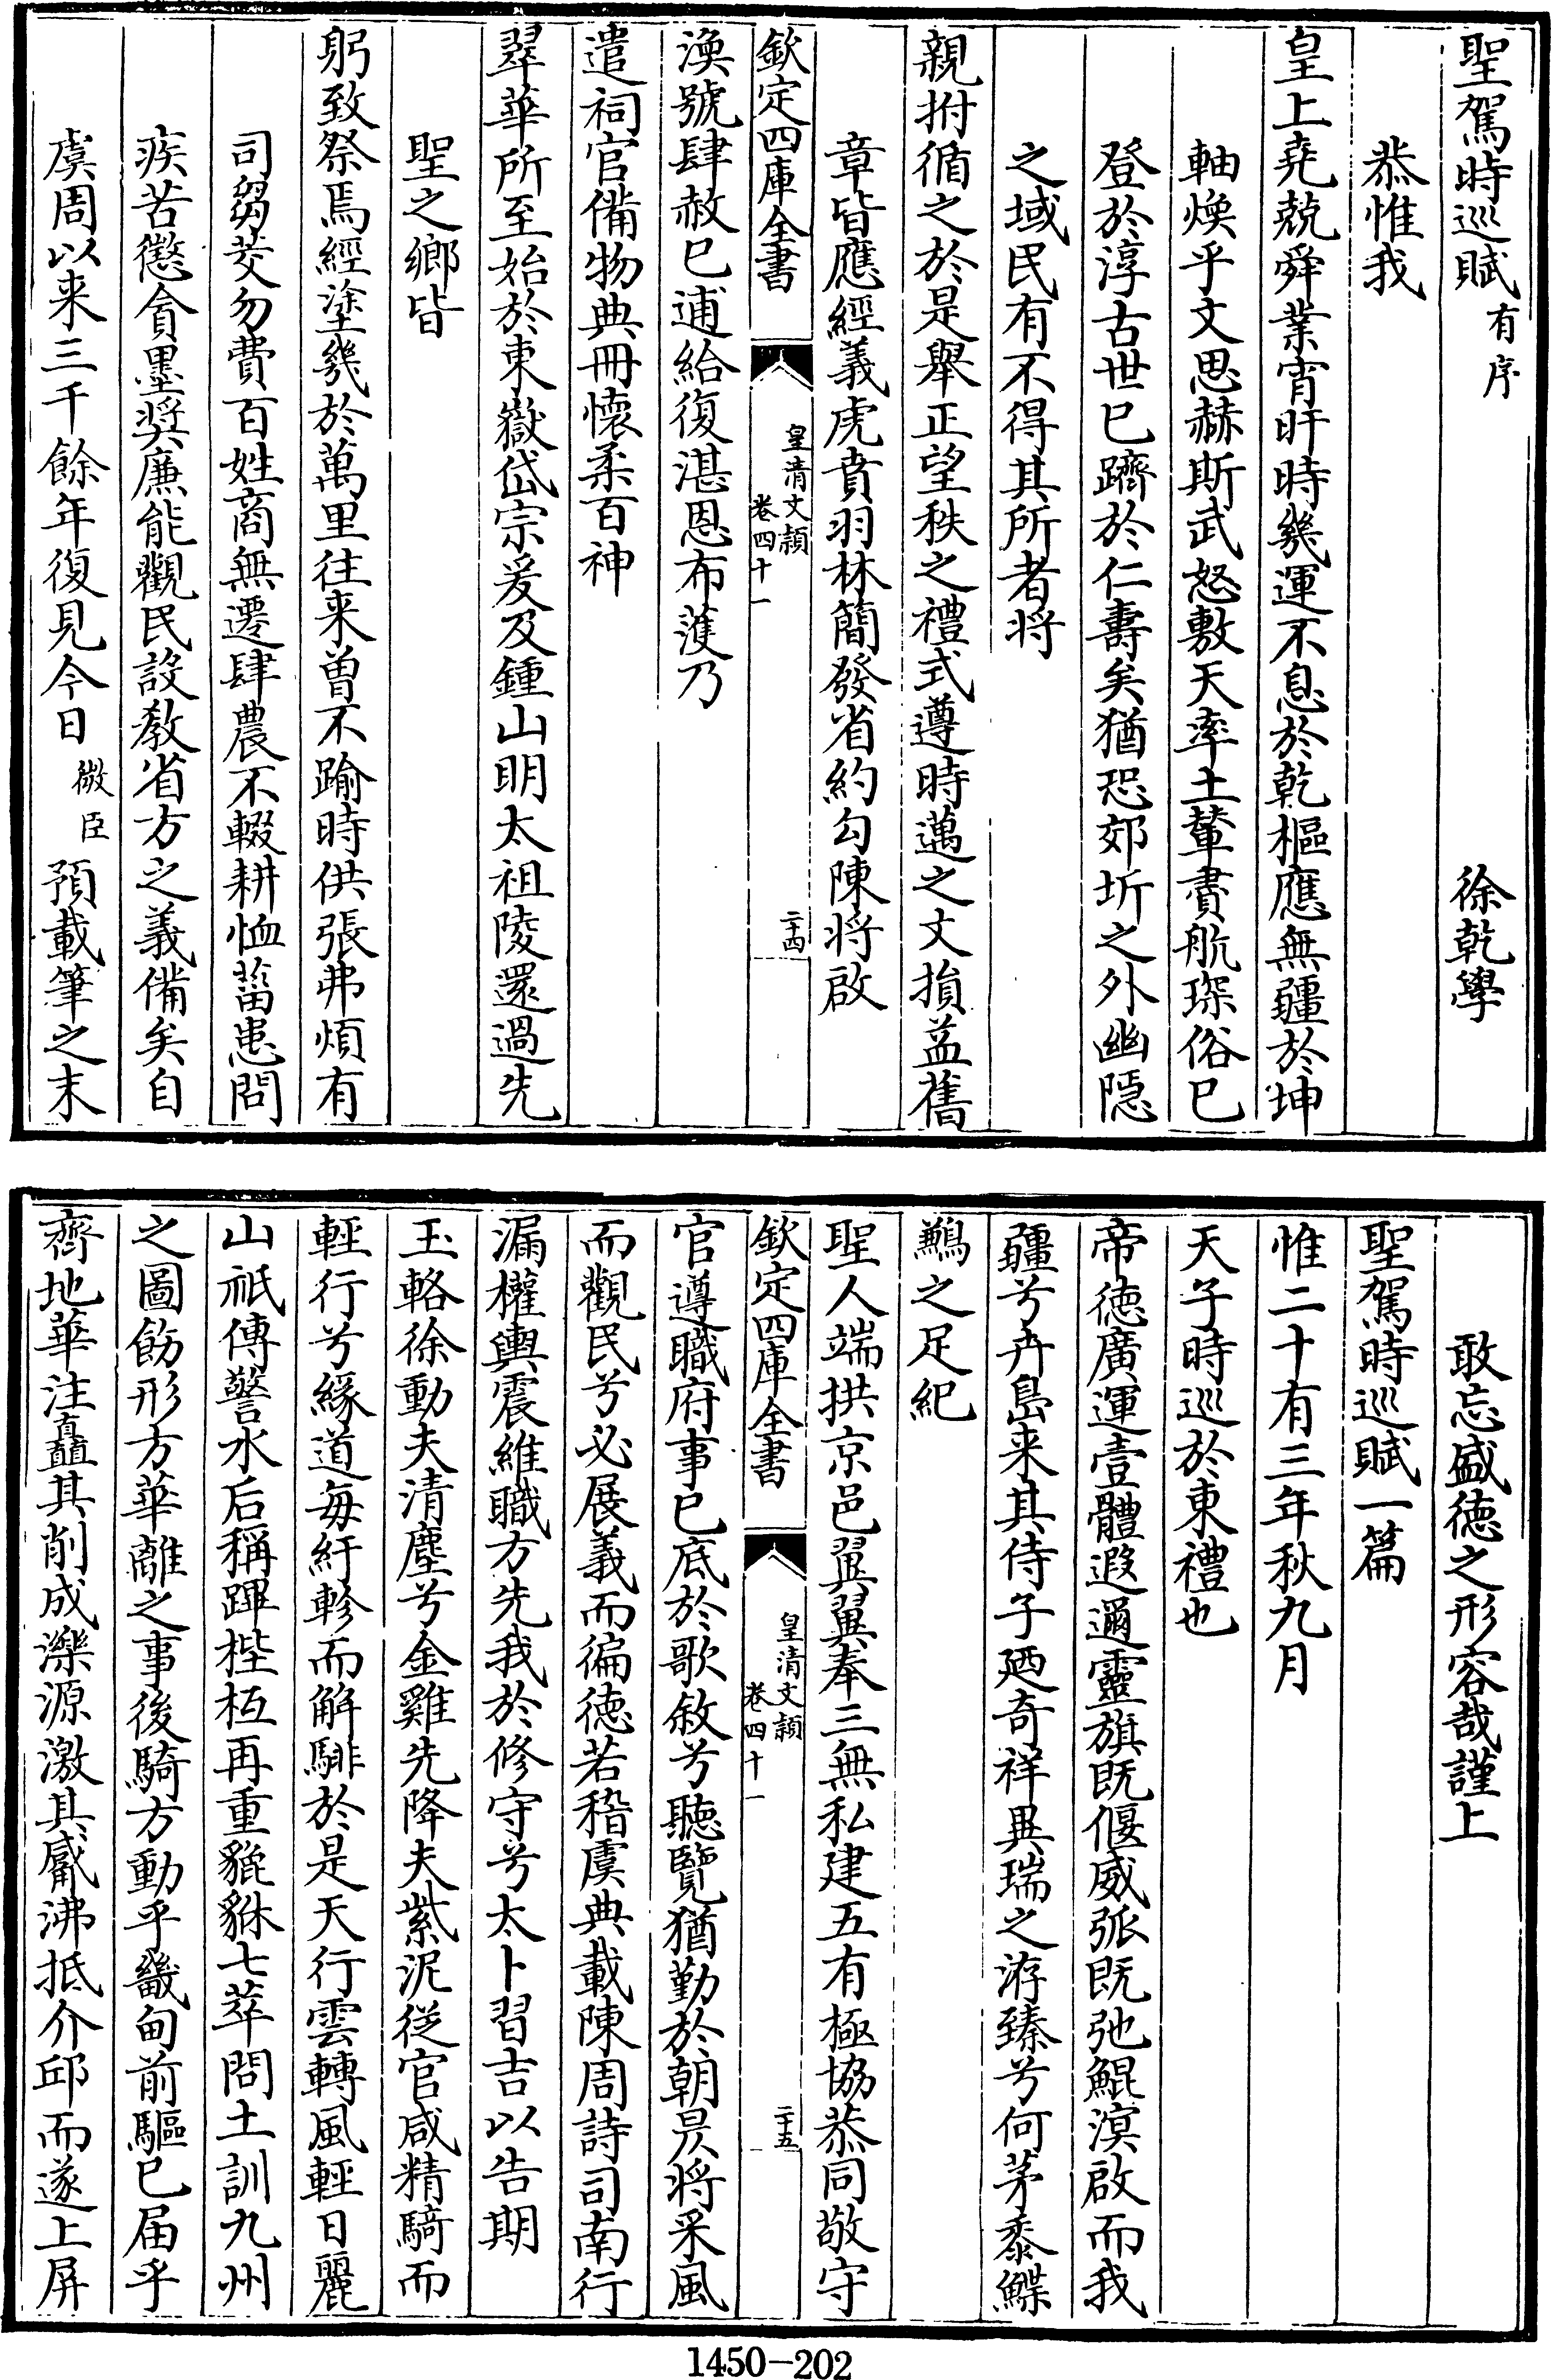 聖駕時巡賦有序　徐乾學
恭惟我
皇上堯兢舜業宵旰時幾運不息於乾樞應無疆於坤
軸煥乎文思赫斯武怒敷天率土輦賮航琛俗已
登於淳古世已躋於仁壽矣猶恐郊圻之外幽隠
之域民有不得其所者将
親拊循之於是舉正望秩之禮式遵時邁之文損益舊
章皆應經義虎賁羽林簡發省約勾陳将啟
欽定四庫全書　皇清文穎　卷四十一　二十四
渙號肆赦已逋給復湛恩布濩乃
遣祠官備物典冊懷柔百神
翠華所至始於東嶽岱宗爰及鍾山明太祖陵還過先
聖之鄉皆
躬致祭焉經塗幾於萬里往来曽不踰時供張弗煩有
司芻茭勿費百姓商無遷肆農不輟耕恤菑患問
疾苦懲貪墨奬廉能觀民設教省方之義備矣自
虞周以来三千餘年復見今日微臣預載筆之末
敢忘盛徳之形容哉謹上
聖駕時巡賦一篇
惟二十有三年秋九月
天子時巡於東禮也
帝徳廣運壹體遐邇靈旗既偃威弧既弛鯤溟啟而我
疆兮卉島来其侍子廼奇祥異瑞之洊臻兮何茅黍鰈
鶼之足紀
聖人端拱京邑翼翼奉三無私建五有極協恭同敬守
欽定四庫全書　皇清文穎　卷四十一　二十五
官遵職府事已底於歌敘兮聽覽猶勤於朝昃将采風
而觀民兮必展義而徧徳若稽虞典載陳周詩司南行
漏權輿震維職方先我於修守兮太卜習吉以告期
玉輅徐動夫清塵兮金雞先降夫紫泥從官咸精騎而
輕行兮緣道毎紆軫而解騑於是天行雲轉風輕日麗
山祇傳警水后稱蹕梐枑再重貔貅七萃問土訓九州
之圖飭形方華離之事後騎方動乎畿甸前驅已届乎
齊地華注矗其削成濼源激其觱沸抵介邱而遂上屏
1450-202